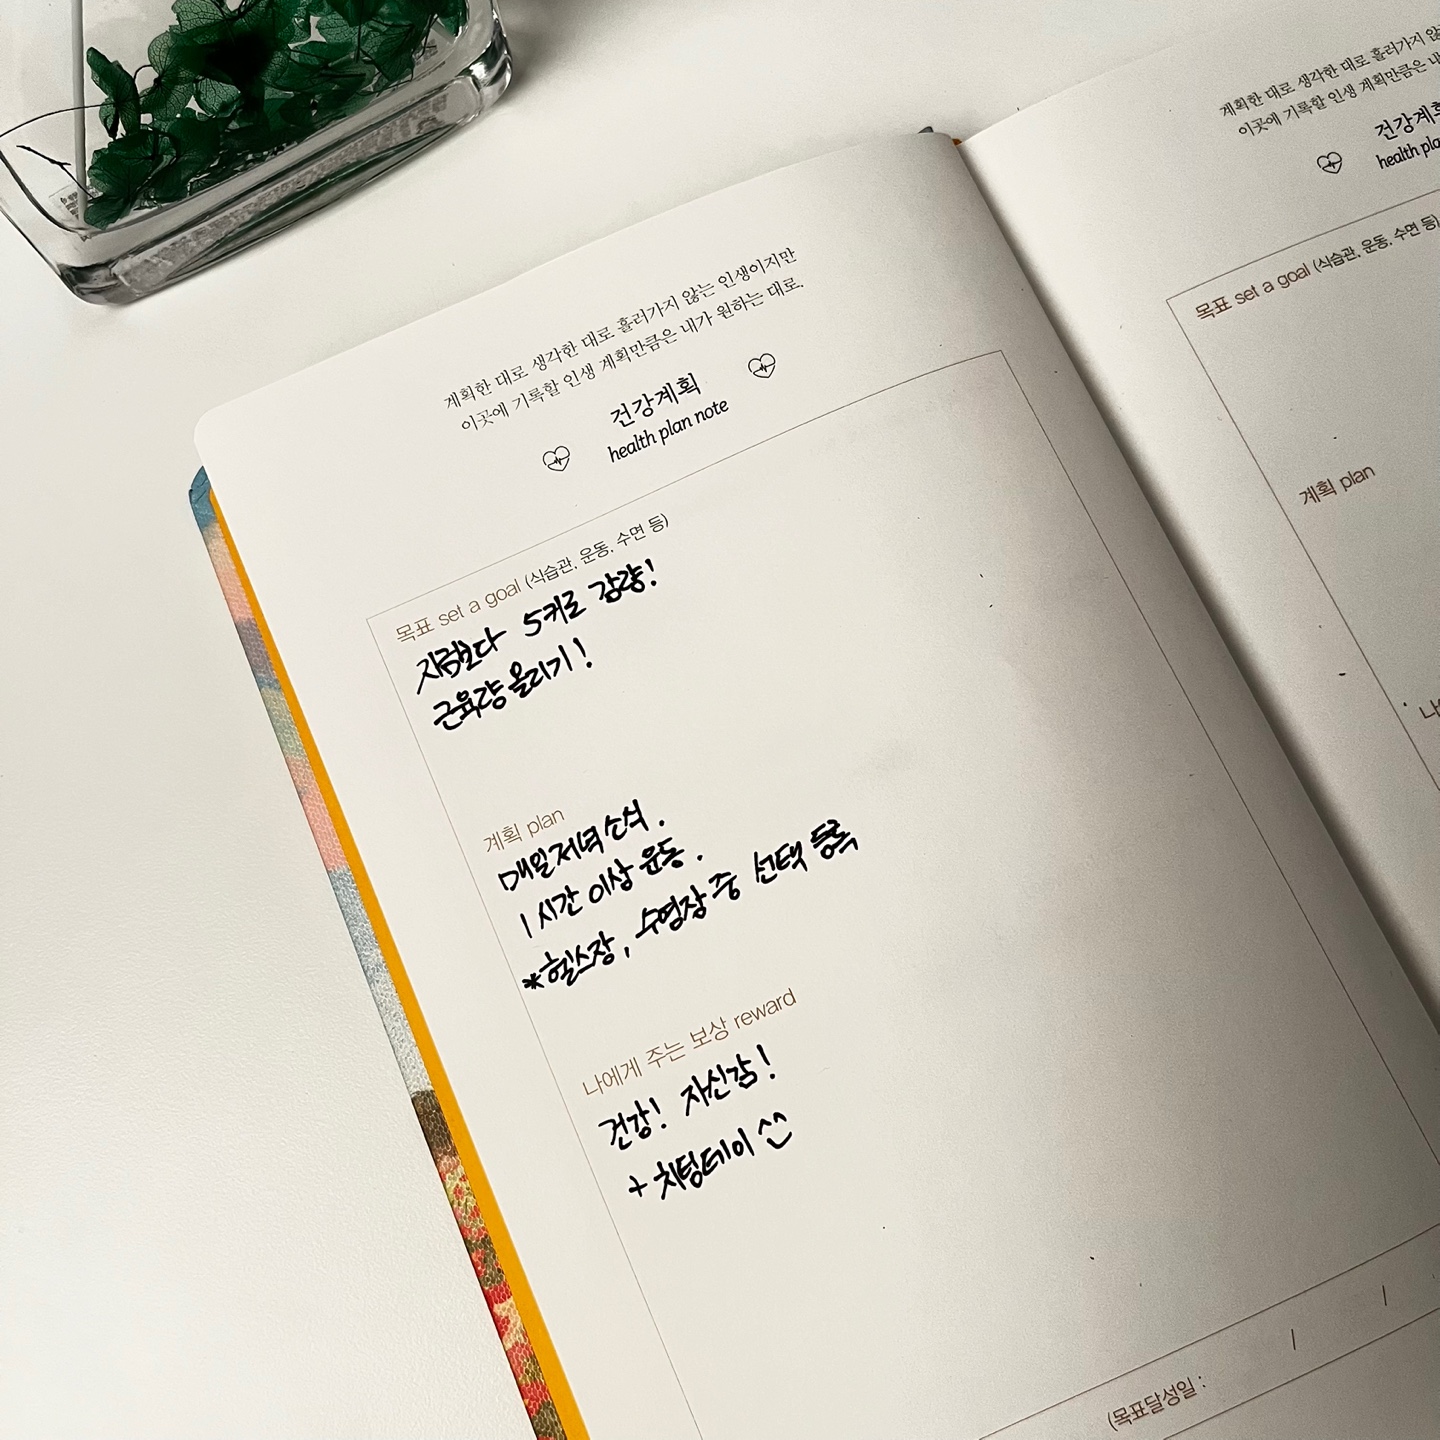 계획한 대로 생각한 대로 흘러가지 않는 인생이지만
이곳에 기록할 인생 계획만큼은 내가 원하는 대로.
건강계획
health plan note
목표 set a goal (식습관, 운동, 수면 등)
지금보다 5키로 감량!
근육량 올리기!
계획 plan
매일 저녁 소식.
1시간 이상 운동.
*헬스장, 수영장 중 선택 등록
나에게 주는 보상 reward
건강! 자신감!
+ 치팅데이 ^^
(목표달성일 : / /
계획한 대로 생각한 대로 흘러가지
이곳에 기록할 인생 계획만큼은
건강계획
health
목표 set a goal (식습관, 운동, 수면 등)
계획 plan